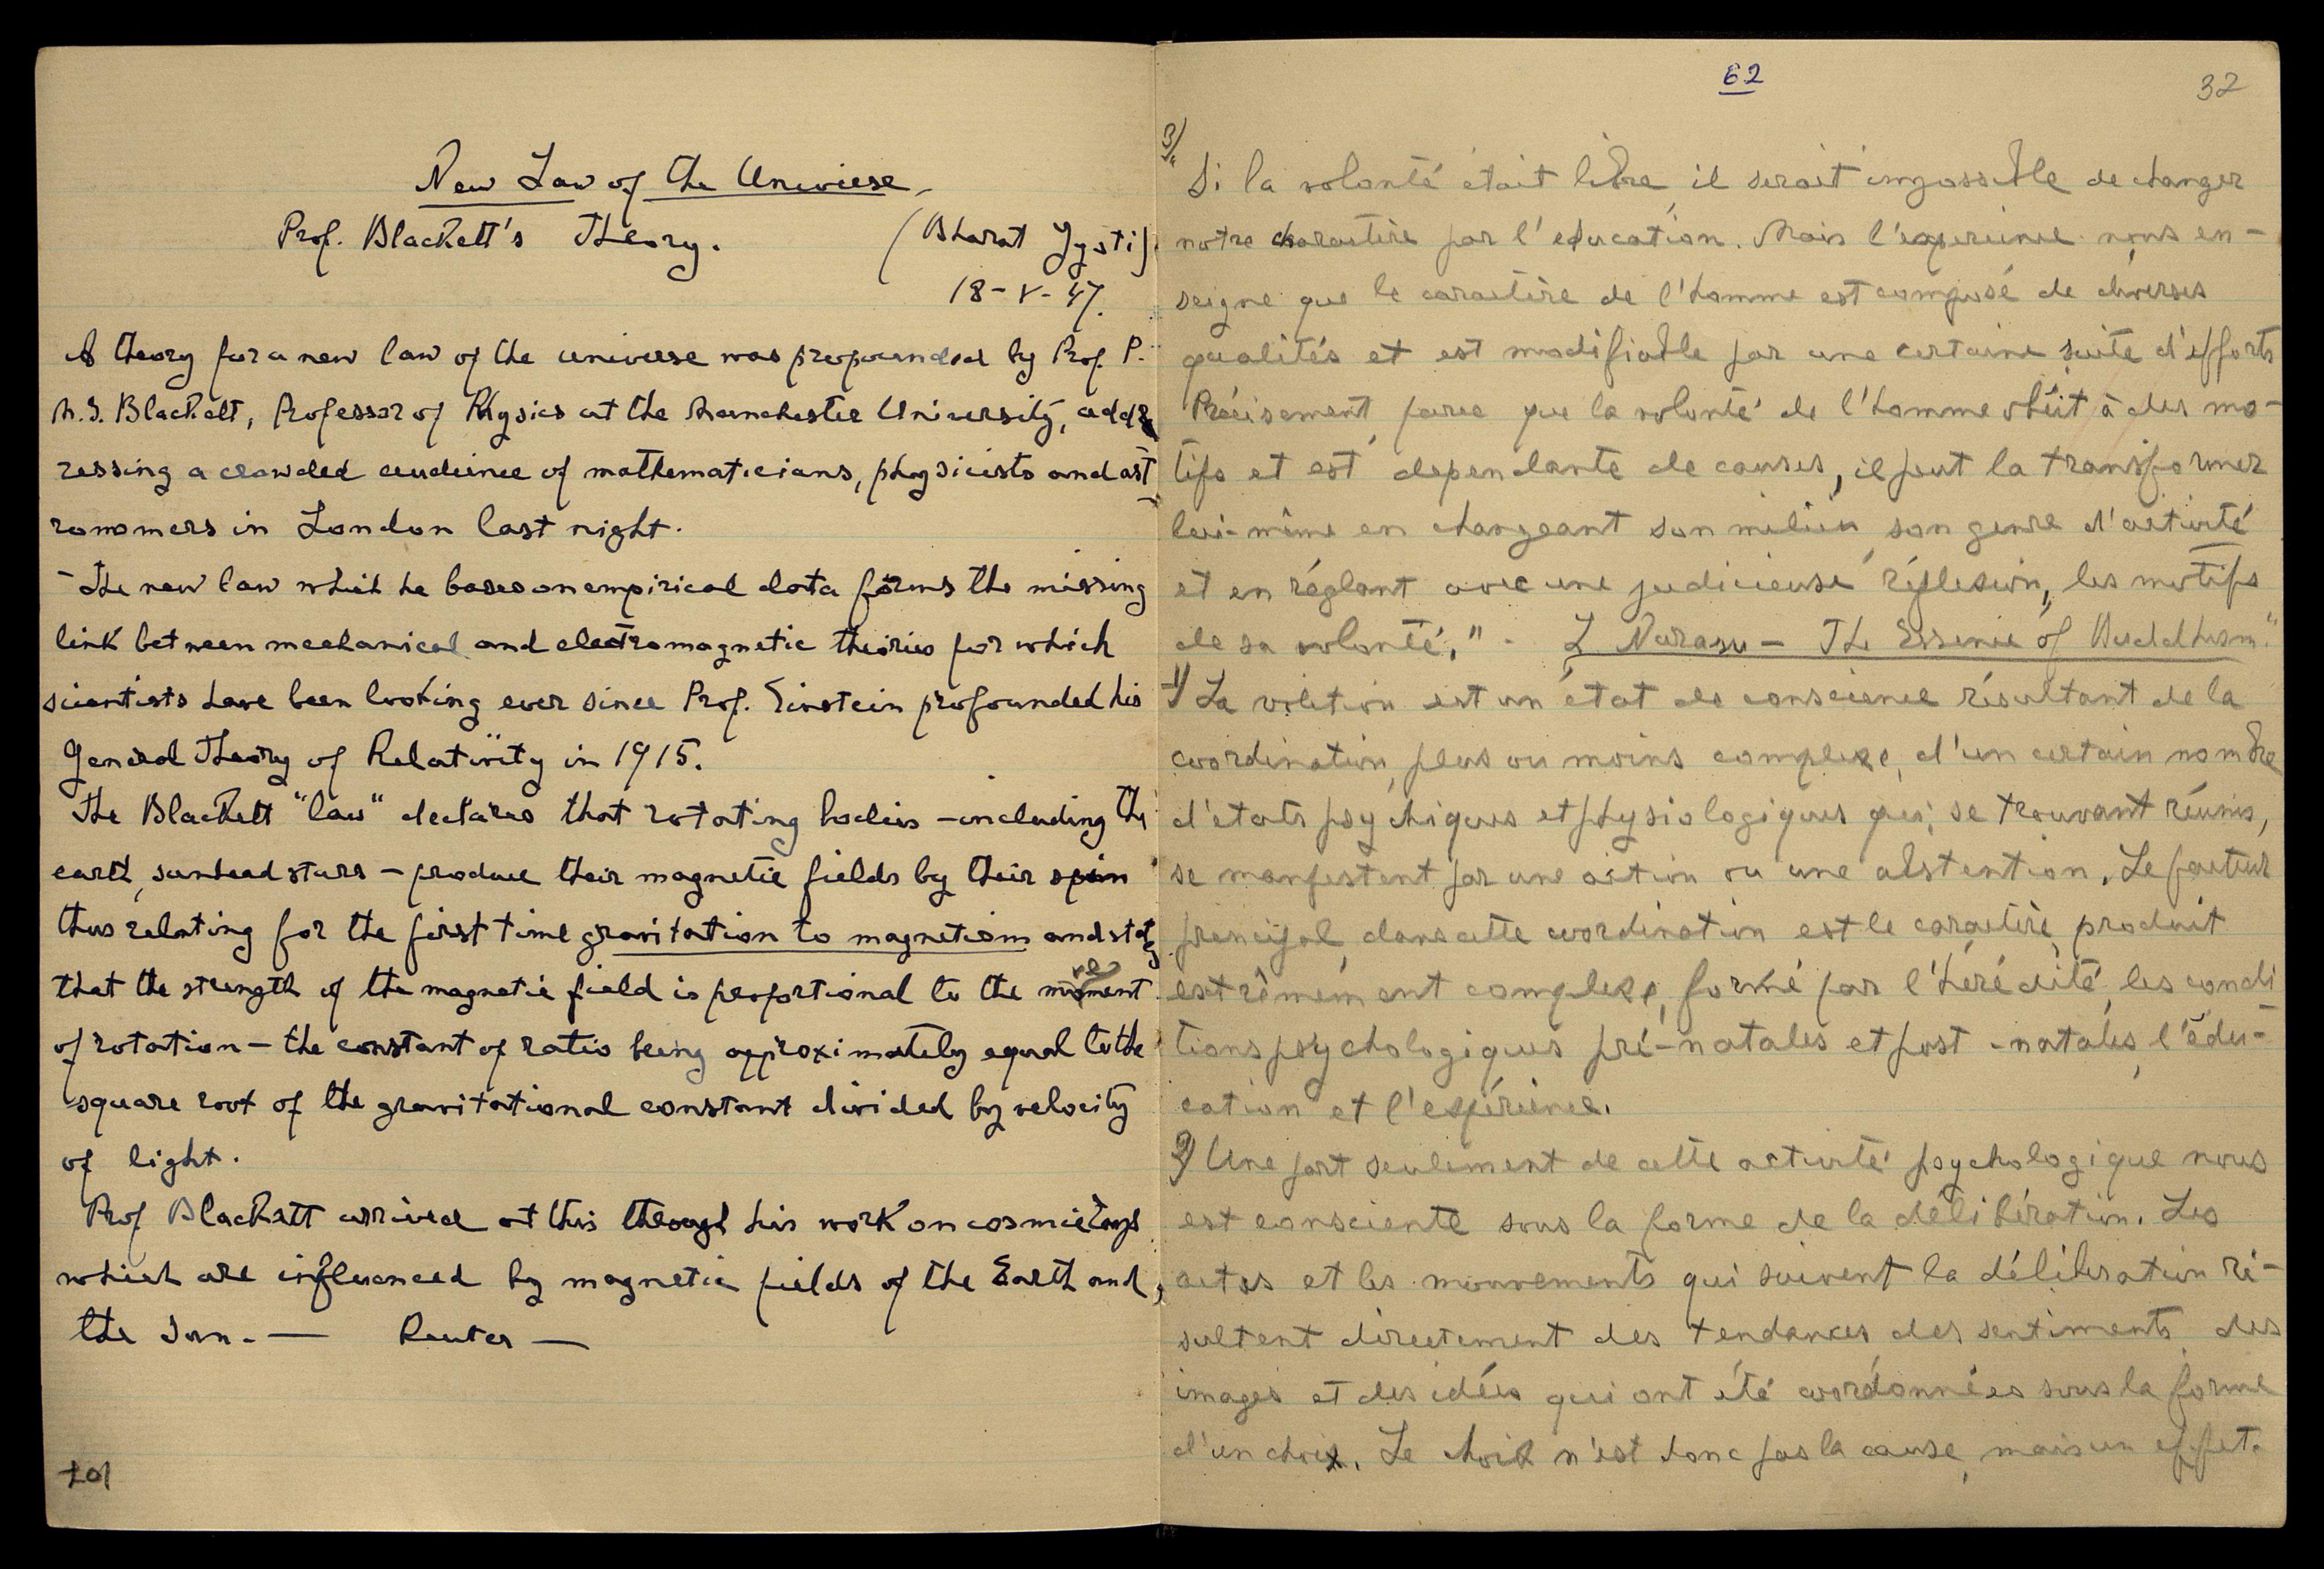 New Law of the Universe
Prof. Blackett's Theory. (Bharat Jyoti)
18-V-47.
A theory for a new law of the universe was propounded by Prof. P.
M.S. Blackett, Professor of Physics at the Manchester University, add
ressing a crowded audience of mathematicians, physicists and ast
ronomers in London last night.
The new law which he bases on empirical data forms the missing
link between mechanical and electromagnetic theories for which
scientists have been looking ever since Prof. Einstein profounded his
General Theory of Relativity in 1915.
The Blackett "law" declares that rotating bodies – including the
earth, sun and stars – produce their magnetic fields by their spin
thus relating for the first time gravitation to magnetism and
that the strength of the magnetic field is proportional to the moment
of rotation – the constant of ratio being approximately equal to the
square root of the gravitational constant divided by velocity
of light.
Prof Blackett arrived at this through his work on cosmic rays
which are influenced by magnetic fields of the Earth and
the Sun. — Reuter —
101
62
32
3) "Si la volonté était libre, il serait impossible de changer
notre charactère par l'education. Mais l'experience nous en-
seigne que le caractère de l'homme est composé de diverses
qualités et est modifiable par une certaine suite d'efforts
Précisement, parce que la volonté de l'homme obéit à des mo-
tifs et est dependante de causes, il peut la transformer
lui-même en changeant son milieu, son genre d'activité
et en réglant avec une judicieuse réflexion, les motifs
de sa volonté." - L Narasu – The Essence of Buddhism"
1) La volition est un état de conscience résultant de la
coordination, plus ou moins complexe, d'un certain nombre
d'états psychiques et physiologiques qui, se trouvant réunis,
se manifestent par une action ou une abstention. Le facteur
principal, dans cette coordination est le caractère, produit
extrêmement complexe, formé par l'hérédité, les condi
tions psychologiques pré-natales et post-natales, l'édu-
cation et l'expérience.
2) Une part seulement de cette activité psychologique nous
est consciente sous la forme de la délibération. Les
actes et les mouvements qui suivent la délibération ré-
sultent directement des tendances, des sentiments, des
images et des idées qui ont été coordonnées sous la forme
d'un choix. Le choix n'est donc pas la cause, mais un effet.